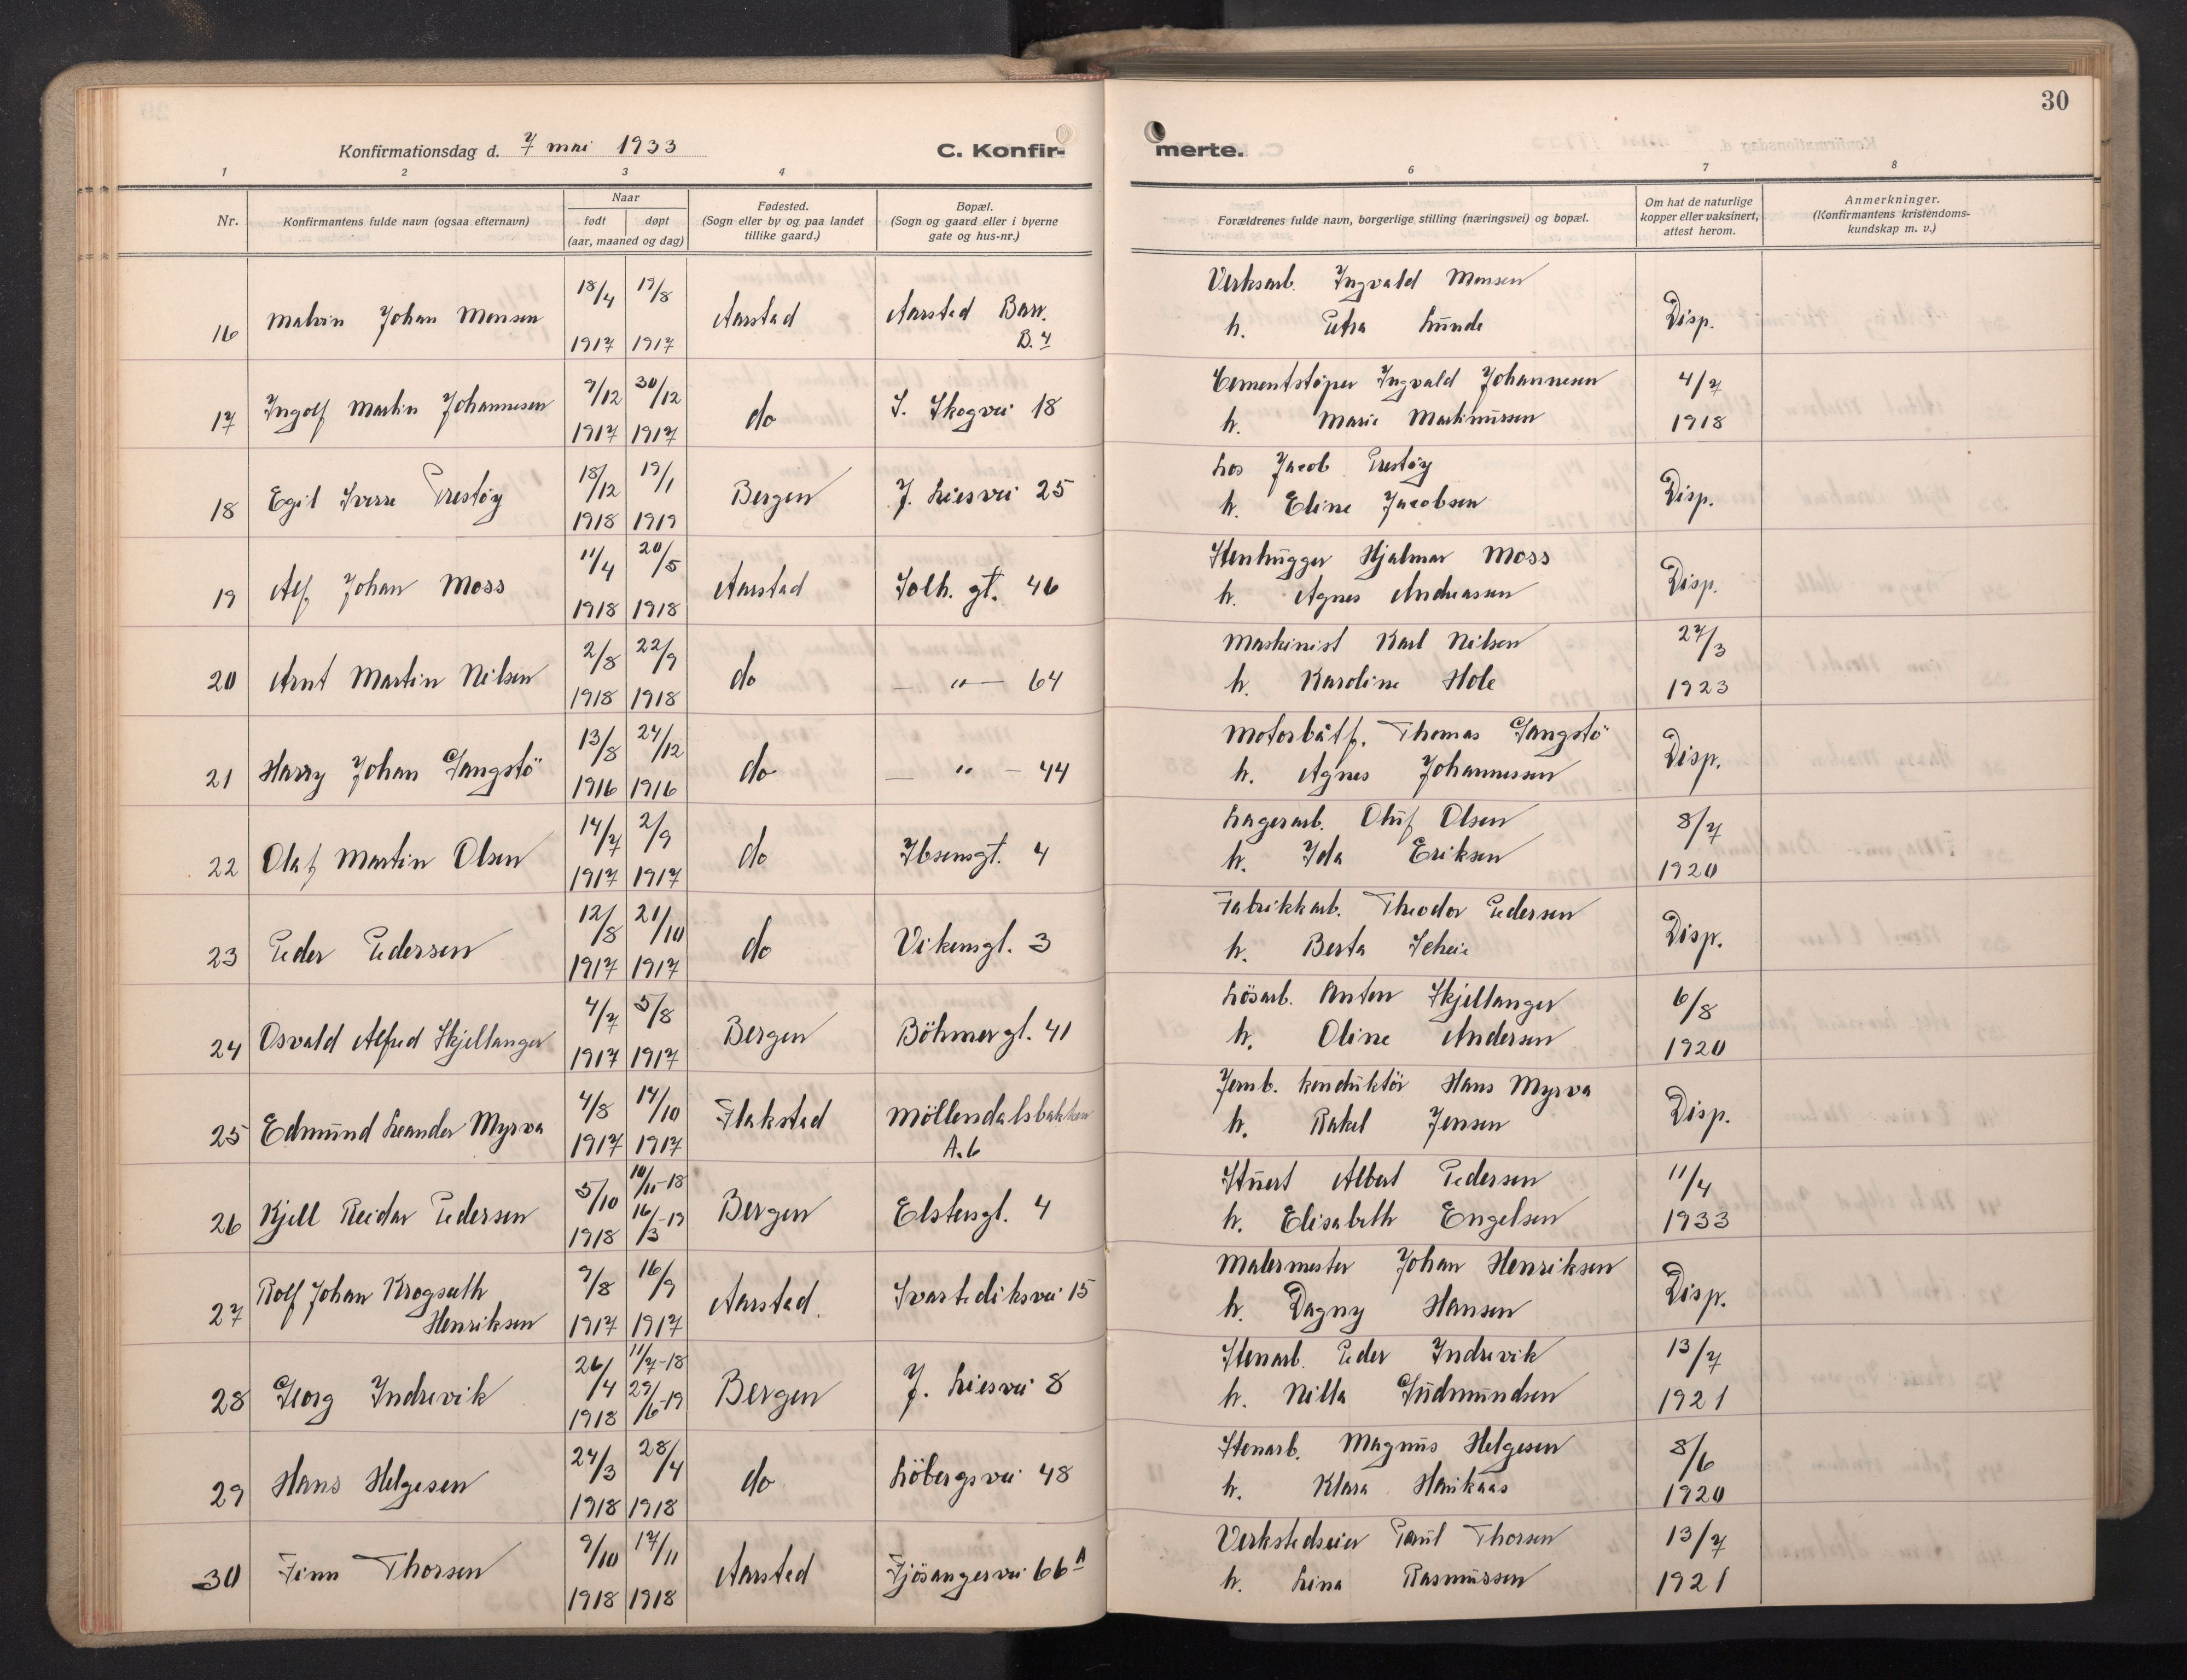 30
Konfirmationsdag d. 7 mai 1933
C. Konfir-
merte.
1 2 3 4 6 7 8
Nr.
Konfirmantens fulde navn (ogsaa efternavn)
Naar
født døpt
(aar, maaned og dag)
Fødested.
(Sogn eller by og paa landet
tillike gaard.)
Bopæl.
(Sogn og gaard eller i byerne
gate og hus-nr.)
Forældrenes fulde navn, borgerlige stilling (næringsvei) og bopæl.
Om hat de naturlige
kopper eller vaksinert,
attest herom.
Anmerkninger.
(Konfirmantens kristendoms-
kundskap m. v.)
18/4 19/8 Verksarb. Ingvald Monsen
16 Malvin Johan Monsen Aarstad Aarstad Barr. Disp.
1917 1917 B. 7 h. Petra Lunde
9/12 30/12 Cementstøper Ingvald Johannesen 4/7
17 Ingolf Martin Johannesen do S. Skogvei 18
1917 1917 h. Marie Martinussen 1918
18/12 19/1 Los Jacob Prestøy
18 Egil Sverre Prestøy Bergen J. Liesvei 25 Disp.
1918 1919 h. Eline Jacobsen
11/4 20/5 Stenhugger Hjalmar Moss
19 Alf Johan Moss Aarstad Solh. gt. 46 Disp.
1918 1918 h. Agnes Andreassen
2/8 22/9 Maskinist Karl Nilsen 27/3
20 Arnt Martin Nilsen do — " — 64
1918 1918 h. Karoline Hole 1923
13/8 24/12 Motorbåtf. Thomas Gangstö
21 Harry Johan Gangstö do — " — 44 Disp.
1916 1916 h. Agnes Johannessen
14/7 2/9 Lagerarb. Oluf Olsen 8/7
22 Olaf Martin Olsen do Ibsensgt. 4
1917 1917 h. Ida Eriksen 1920
12/8 21/10 Fabrikkarb. Theodor Pedersen
23 Peder Pedersen do Vikensgt. 3 Disp.
1917 1917 h. Berta Scheie
4/7 5/8 Lösarb. Anton Skjellanger 6/8
24 Osvald Alfred Skjellanger Bergen Böhmergt. 41
1917 1917 h. Oline Andersen 1920
4/8 14/10 Jernb. konduktör Hans Myrva
25 Edmund Leander Myrva Flakstad Möllendalsbakken Disp.
1917 1917 A. 6 h. Rakel Jensen
5/10 10/11-18 Stuert Albert Pedersen 11/4
26 Kjell Reidar Pedersen 16/3-19 Bergen Elstersgt. 4
1918 h. Elisabeth Engelsen 1933
9/8 16/9 Malermester Johan Henriksen
27 Rolf Johan Krogseth Aarstad. Svartediksvei 15 Disp.
Henriksen 1917 1917 h. Dagny Hansen
26/4 11/7-18 Stenarb. Peder Indrevik 13/7
28 Georg Indrevik 29/6-19 Bergen J. Liesvei 8
1918 h. Nilla Gudmundsen 1921
24/3 28/4 Stenarb. Magnus Helgesen 8/6
29 Hans Helgesen do Löbergsvei 48
1918 1918 h. Klara Haukaas 1920
9/10 17/11 Verkstedseier Paul Thorsen 13/7
30 Finn Thorsen Aarstad Fjösangervei 66 A
1918 1918 h. Lina Rasmussen 1921